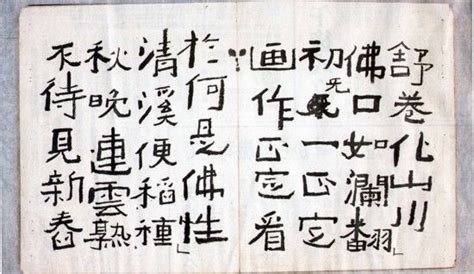 舒卷化山川
佛口如瀾翻」
初无一正定
画作正定看
於何是佛性
清溪便稻種」
秋晚連雲熟
不待見新舂